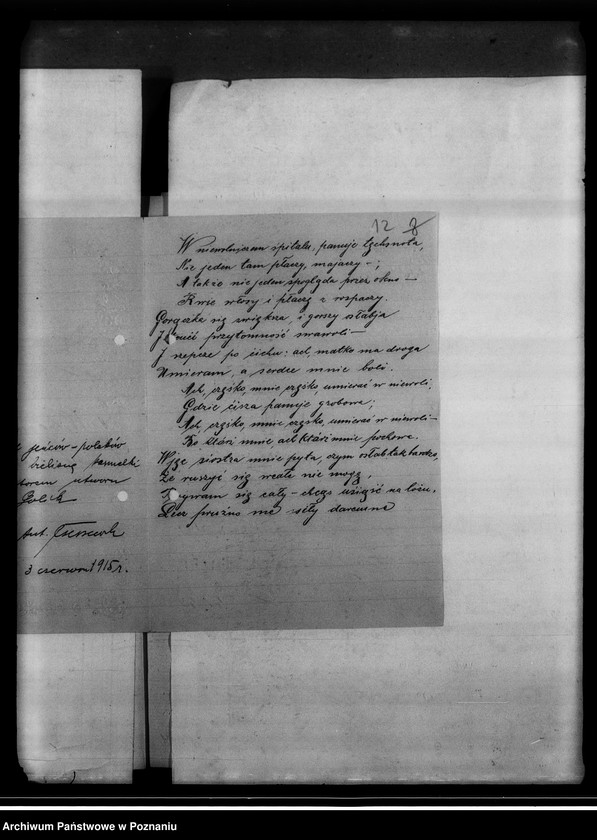 12 8
W niewolniczem spitalu, panuje
Nie jeden tam płaczy, majaczy –;
A także nie jeden spogląda przez okno –
Rwie włosy i płaczy z rozpaczy.
Gorączka się zwiększa, i gorszy osłabja
I przytomność
I szepcze po cichu: ach, matko ma droga
Umieram, a serdce mnie boli.
Ach, czężko, mnie czężko, umierać w niewoli;
Gdzie cisza panuje grobowa;
Ach, czężko, mnie czężko, umierać w niewoli –
Bo któż mnie, ach któż mnie pochowa.
siostra mnie pyta, czym osłab tak bardzo,
Że ruszyć się wcale nie mogę,
się cały – chcąc usiąść na łożu,
Lecz próżno me siły daremne
jeńców-polaków
bieliznę
utworu
Polek
Ant.
3 czerwca 1915 r.
Archiwum Państwowe w Poznaniu